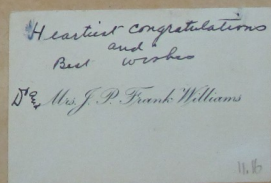 Heartiest congratulations
and
Best wishes
Dr and Mrs. J. P. Frank Williams
11.16